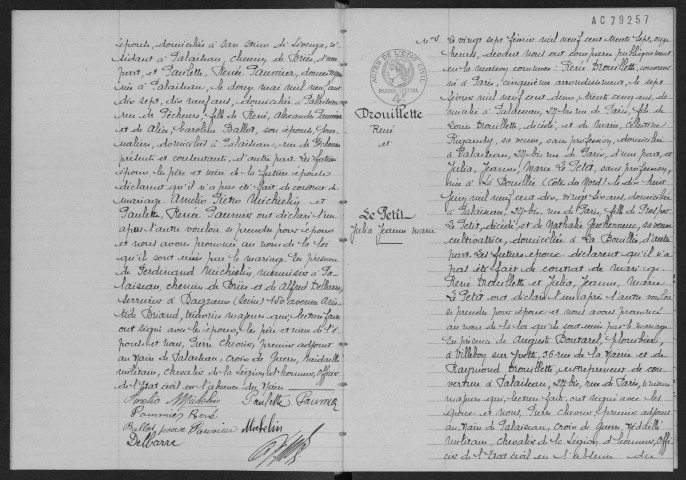 épouse, domiciliés à San Pietro di Livenza, ré-
sidant à Palaiseau, chemin de Briis, d'une
part, et Paulette, Renée Paumier, 
née à Palaiseau, le douze mai mil neuf cent
dix sept, dix neuf ans, domiciliée à Palaiseau
rue de Pêcheurs, fille de René, Alexandre Paumier
et de Alice Caroline Ballot, son épouse, jour-
naliers, domiciliés à Palaiseau, rue de Pêcheurs
présents et consentants, d'autre part. Les futurs
époux, les père et mère de la future épouse
déclarent qu'il n'a pas été fait de contrat de
mariage. Amelio Pietro Michelin et
Paulette, Renée Paumier ont déclaré l'un
après l'autre vouloir se prendre pour époux
et nous avons prononcé au nom de la loi
qu'ils sont unis par le mariage. En présence
de Ferdinand Michelin, menuisier à Pa-
laiseau, chemin de Briis et de Alfred Delbarre,
serrurier à Bagneux (Seine) 150 avenue Aris-
tide Briand, témoins majeurs qui, lecture faite
ont signé avec les époux, les père et mère de l'é-
pouse et nous, Pierre Chevin, premier adjoint
au Maire de Palaiseau, croix de Guerre, médaille
militaire, chevalier de la Légion d'honneur, officier
de l'Etat civil en l'absence du Maire
Amelio Michelin Paulette Paumier
Paumier René
Ballot Paumier Michelin
Delbarre
AC 79257
ACTES DE L'ETAT CIVIL
Drouillette
René
et
Le Petit
Julia Jeanne Marie
Le vingt sept février mil neuf cent trente sept, onze
heures, devant nous ont comparu publiquement
en la maison commune: René Drouillette, couvreur
né à Paris, cinquième arrondissement, le sept
février mil neuf cent deux, trente cinq ans, do-
micilié à Palaiseau, 27 bis rue de Paris, fils de
Louis Drouillette, décédé, et de Marie, Célestine
sa veuve, sans profession, domiciliée
à Palaiseau, 27 bis rue de Paris, d'une part, et
Julia, Jeanne, Marie Le Petit, sans profession,
née à La Bouillie (Côtes du Nord) le dix huit
juin mil neuf cent dix, vingt six ans, domiciliée
à Palaiseau, 27 bis rue de Paris, fille de
Le Petit, décédé, et de Nathalie sa veuve
cultivatrice, domiciliée à La Bouillie, d'autre
part. Les futurs époux déclarent qu'il n'a
pas été fait de contrat de mariage.
René Drouillette et Julia, Jeanne, Marie
Le Petit ont déclaré l'un après l'autre vouloir
se prendre pour époux et nous avons prononcé
au nom de la loi qu'ils sont unis par le mariage
En présence de August Boutarel, plombier,
à Villebon sur Yvette, 36 rue de la Mairie et de
Raymond Drouillette, entrepreneur de cou-
verture à Palaiseau, 27 bis, rue de Paris, témoins
majeurs qui, lecture faite, ont signé avec les
époux et nous, Pierre Chevin, premier adjoint
au Maire de Palaiseau, croix de Guerre, médaille
militaire, chevalier de la Légion d'honneur, offi-
cier de l'Etat civil en l'absence du